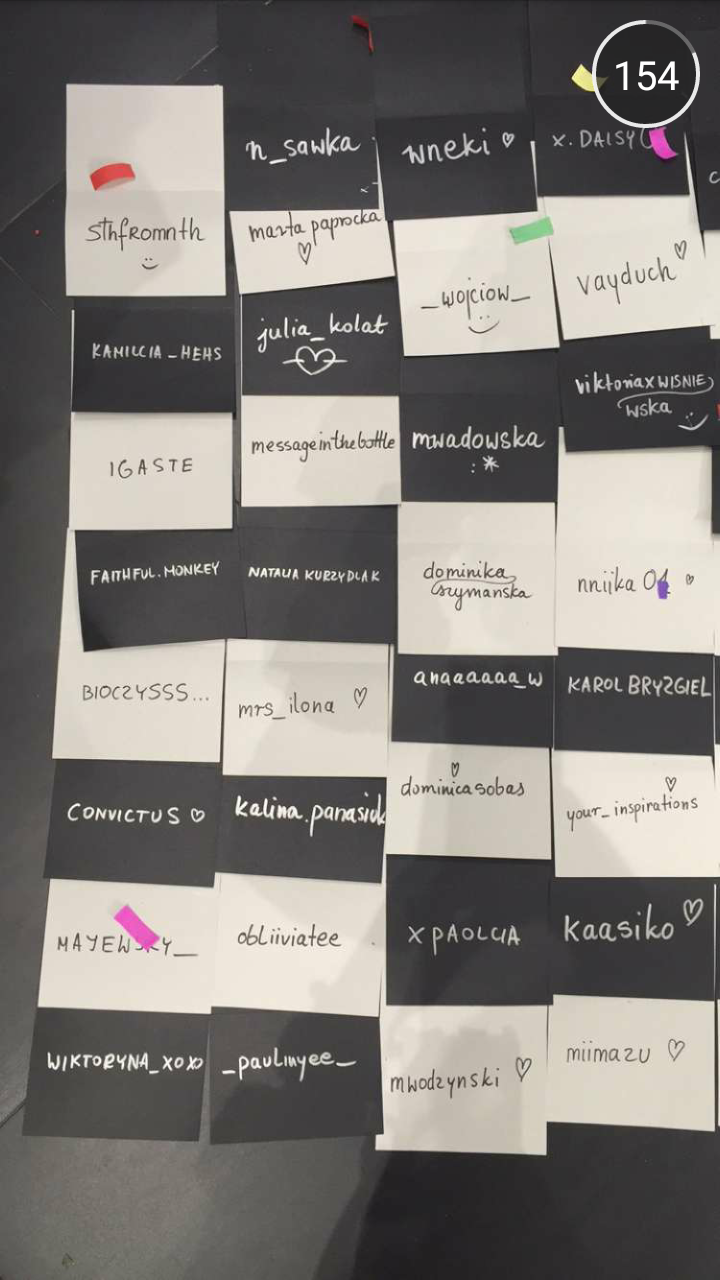 154
n_sawka
wneki ♡
x. DAISY
sthfromnth
marta paprocka
♡
_wojciow_
vayduch ♡
KAMILCIA_HEHS
julia_kolat
viktoriaxWISNIE
wska
IGASTE
messageinthebottle
mwadowska
:*
FAITHFUL.MONKEY
NATALIA KURZYDLAK
dominika
szymanska
nniika 01 ♡
BIOCZYSSS...
mrs_ilona ♡
anaaaaaa_w
KAROL BRYZGIEL
CONVICTUS ♡
kalina.panasiuk
♡
dominicasobas
♡
your_inspirations
MAYEWSKY_
obliiviatee
XPAOLCIA
kaasiko ♡
WIKTORYNA_XOXO
_paulinyee_
mwodzynski ♡
miimazu ♡